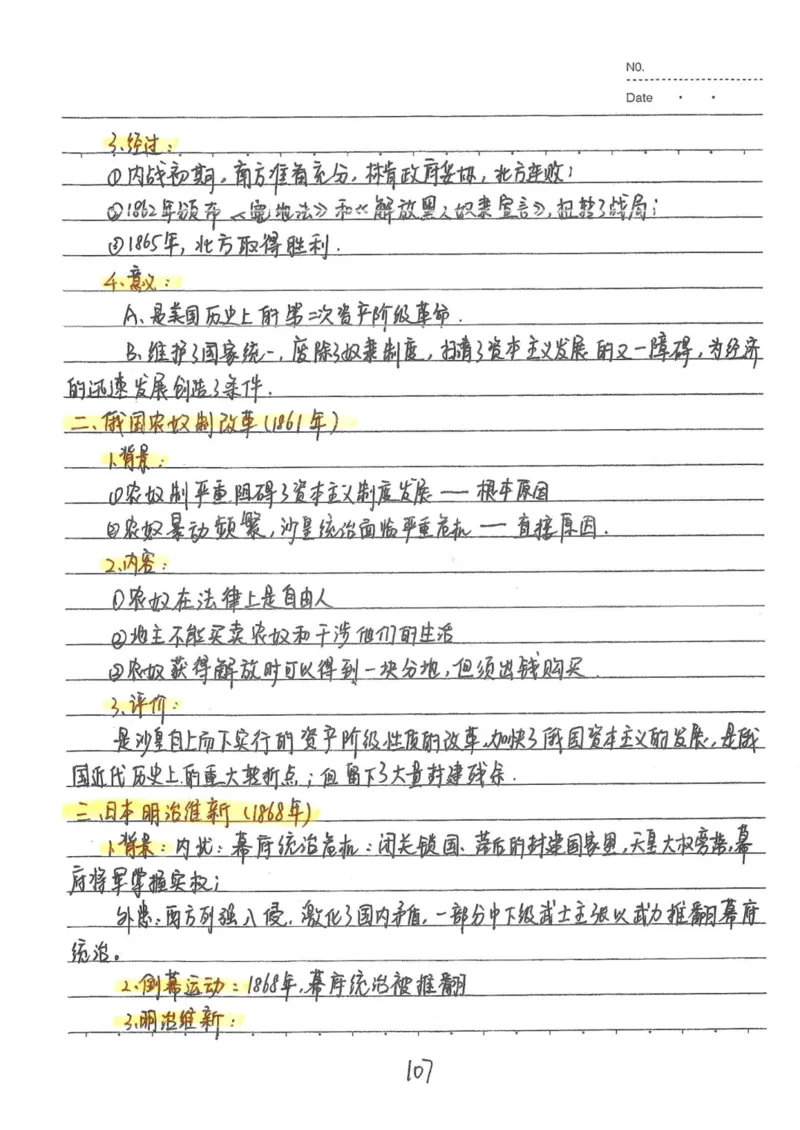 NO.
Date
3.经过:
①内战初期,南方准备充分,林肯政府妥协,北方连败;
②1862年颁布《宅地法》和《解放黑人奴隶宣言》,扭转了战局;
③1865年,北方取得胜利.
4.意义:
A、是美国历史上的第二次资产阶级革命.
B、维护了国家统一,废除了奴隶制度,扫清了资本主义发展的又一障碍,为经济
的迅速发展创造了条件.
二、俄国农奴制改革(1861年)
1.背景:
①农奴制严重阻碍了资本主义制度发展——根本原因
②农奴暴动频繁,沙皇统治面临严重危机——直接原因.
2.内容:
①农奴在法律上是自由人
②地主不能买卖农奴和干涉他们的生活
③农奴获得解放时可以得到一块份地,但须出钱购买.
3.评价:
是沙皇自上而下实行的资产阶级性质的改革,加快了俄国资本主义的发展,是俄
国近代历史上的重大转折点;但留下了大量封建残余.
三、日本明治维新(1868年)
1.背景:内扰:幕府统治危机:闭关锁国、落后的封建国家,天皇大权旁落,幕
府将军掌握实权;
外患:西方列强入侵,激化了国内矛盾,一部分中下级武士主张以武力推翻幕府
统治。
2.倒幕运动:1868年,幕府统治被推翻
3.明治维新:
107